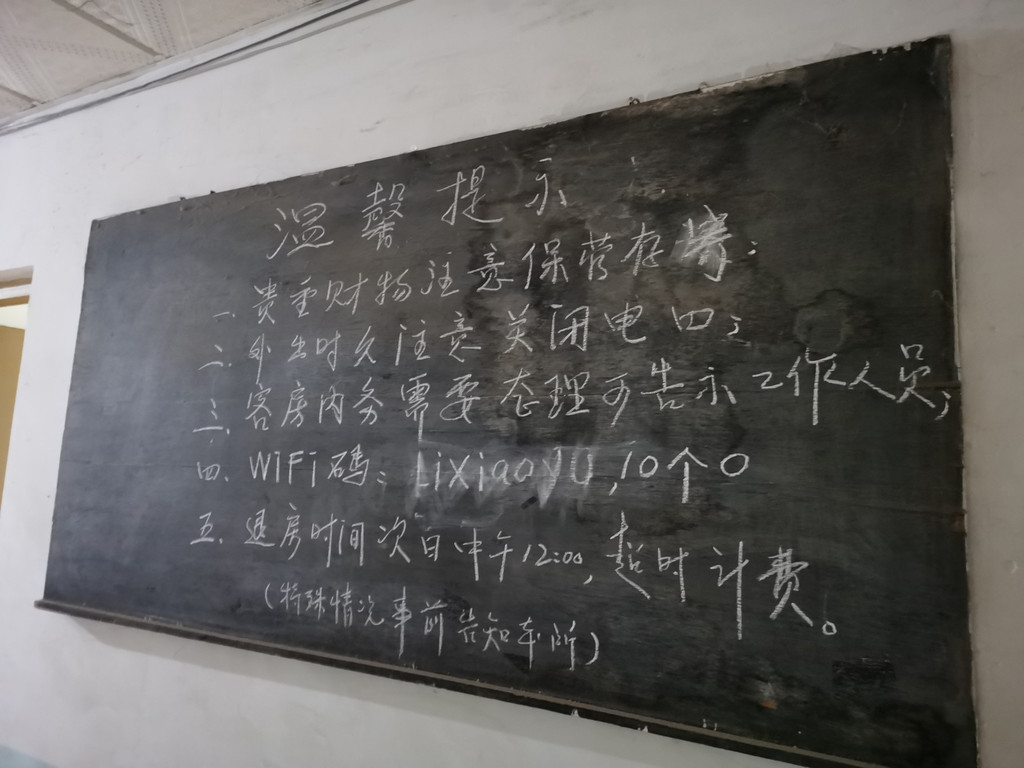 温馨提示
一. 贵重财物注意保管存寄;
二. 外出时久注意关闭电四;
三. 客房内务需要态理可告示工作人员;
四. WiFi码: LiXiaoYU, 10个0
五. 退房时间次日中午12:00, 超时计费。
(特殊情况事前告知本所)